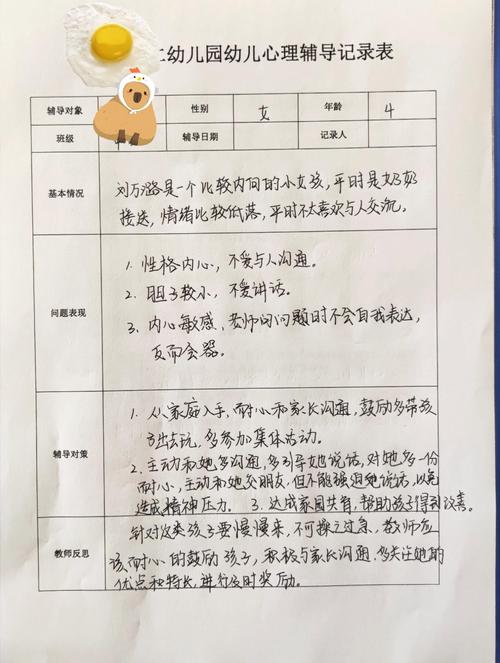 幼儿园幼儿心理辅导记录表
辅导对象 性别 女 年龄 4
班级 辅导日期 记录人
基本情况
刘万潞是一个比较内间的小女孩,平时是奶奶
接送,情绪比较低落,平时不太喜欢与人交流。
问题表现
1. 性格内心,不爱与人沟通。
2. 胆子较小,不爱讲话。
3、内心敏感,老师问问题时不会自我表达,
反而会哭。
辅导对策
1. 从家庭入手,耐心和家长沟通,鼓励多带孩
子出去玩,多参加集体活动。
2. 主动和她多沟通,多引导她说话,对她多一份
耐心,主动和她交朋友,但不能强迫她说话,以免
造成精神压力。 3. 达成家园共育,帮助孩子得到改善。
教师反思
针对这类孩子要慢慢来,不可操之过急,教师应
该耐心的鼓励孩子,积极与家长沟通,多关注她的
优点和特长,进行及时奖励。